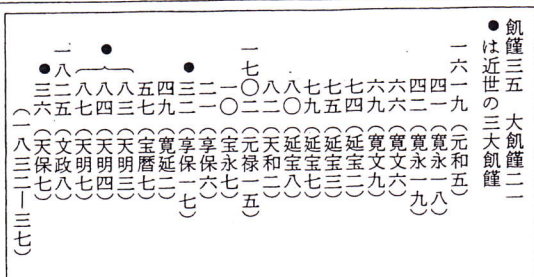 飢饉三五 大飢饉二一
●は近世の三大飢饉
一六一九(元和五)
四一(寛永一八)
四二(寛永一九)
六六(寛文六)
六九(寛文九)
七四(延宝二)
七五(延宝三)
七九(延宝七)
八〇(延宝八)
八二(天和二)
一七〇二(元禄一五)
一〇(宝永七)
二一(享保六)
●三二(享保一七)
四九(寛延二)
五七(宝暦七)
八三(天明三)
●八四(天明四)
八七(天明七)
一八二五(文政八)
●三六(天保七)
(一八三二―三七)